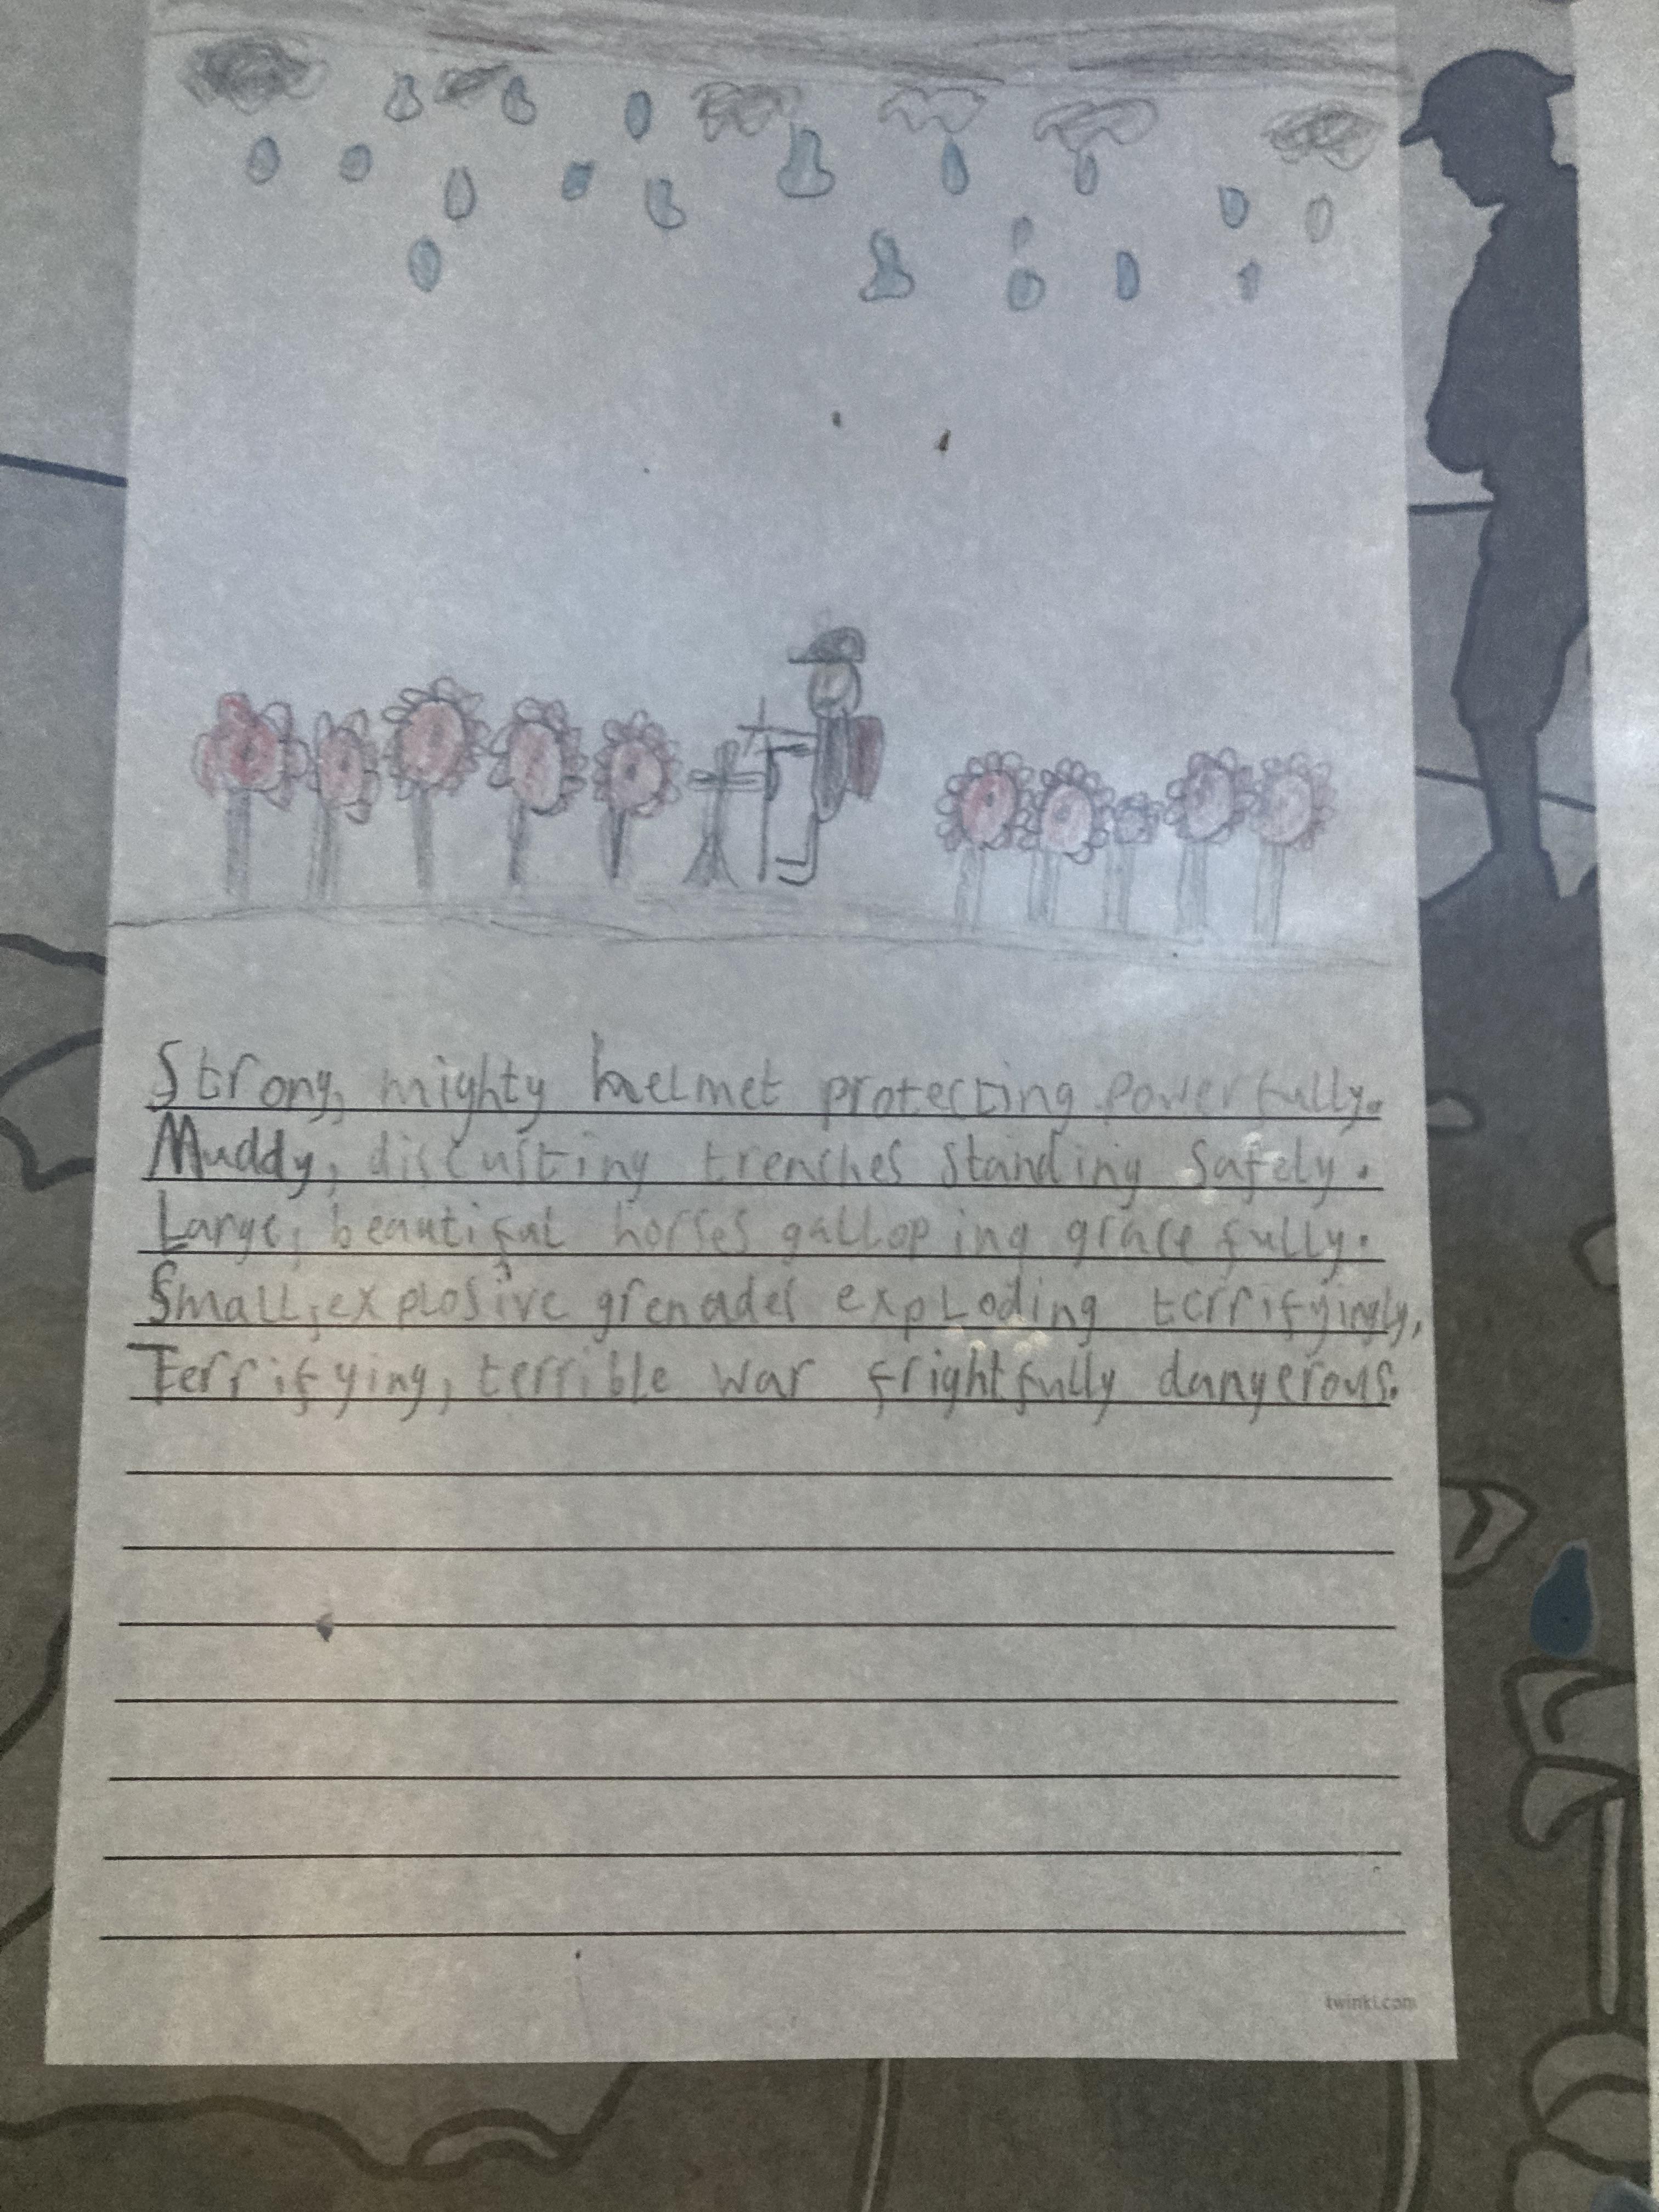 Strong, mighty helmet protecting powerfully.
Muddy, discusting trenches standing safely.
Large, beautifal horses galloping gracefully.
Small, explosive grenades exploding terrifyingly,
Terrifying, terrible war frightfully dangerous.
twinkl.com